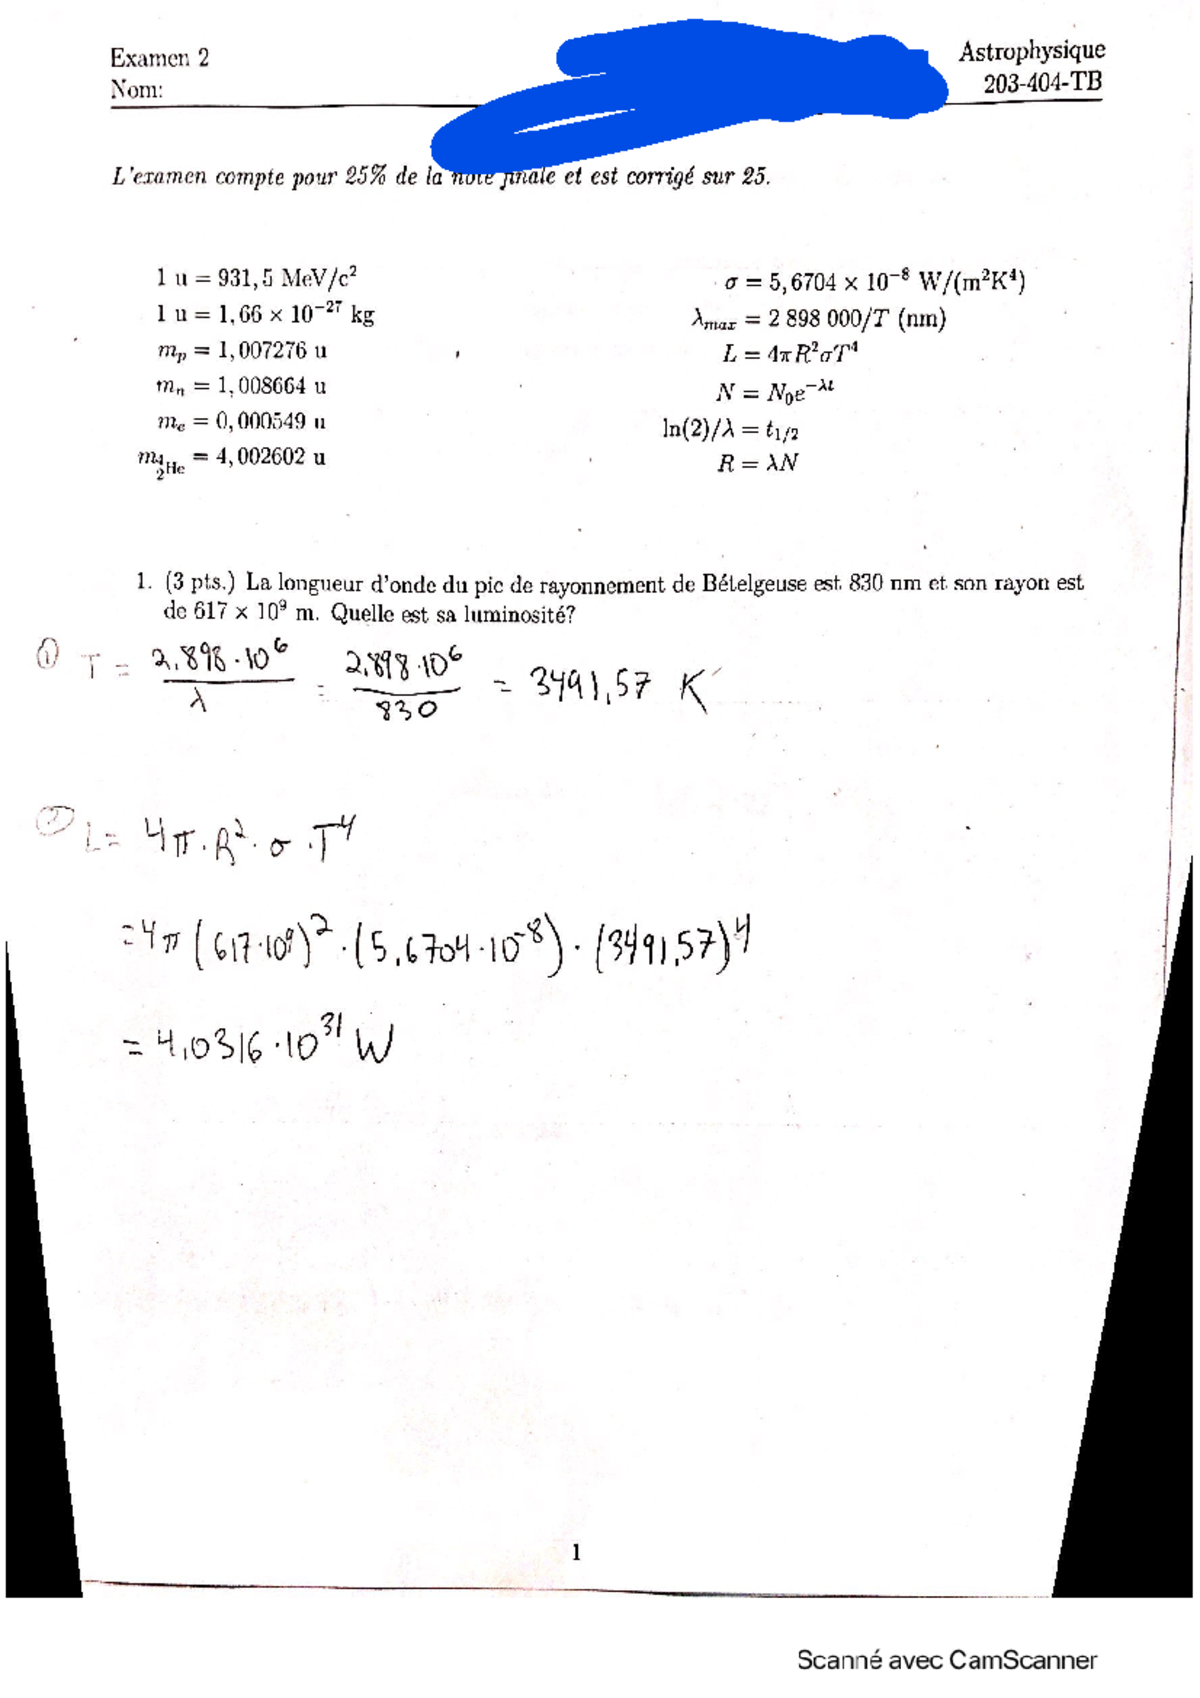 Examen 2
Nom:
Astrophysique
203-404-TB
L'examen compte pour 25% de la note finale et est corrigé sur 25.
1 u = 931,5 MeV/c²
1 u = 1,66 × 10⁻²⁷ kg
mₚ = 1,007276 u
mₙ = 1,008664 u
mₑ = 0,000549 u
m⁴₂He = 4,002602 u
σ = 5,6704 × 10⁻⁸ W/(m²K⁴)
λₘₐₓ = 2 898 000/T (nm)
L = 4πR²σT⁴
N = N₀e^(−λt)
ln(2)/λ = t₁/₂
R = λN
1. (3 pts.) La longueur d'onde du pic de rayonnement de Bételgeuse est 830 nm et son rayon est
de 617 × 10⁹ m. Quelle est sa luminosité?
① T = 2,898·10⁶/λ = 2,898·10⁶/830 = 3491,57 K
② L = 4π·R²·σ·T⁴
= 4π (617·10⁹)² · (5,6704·10⁻⁸) · (3491,57)⁴
= 4,0316·10³¹ W
1
Scanné avec CamScanner